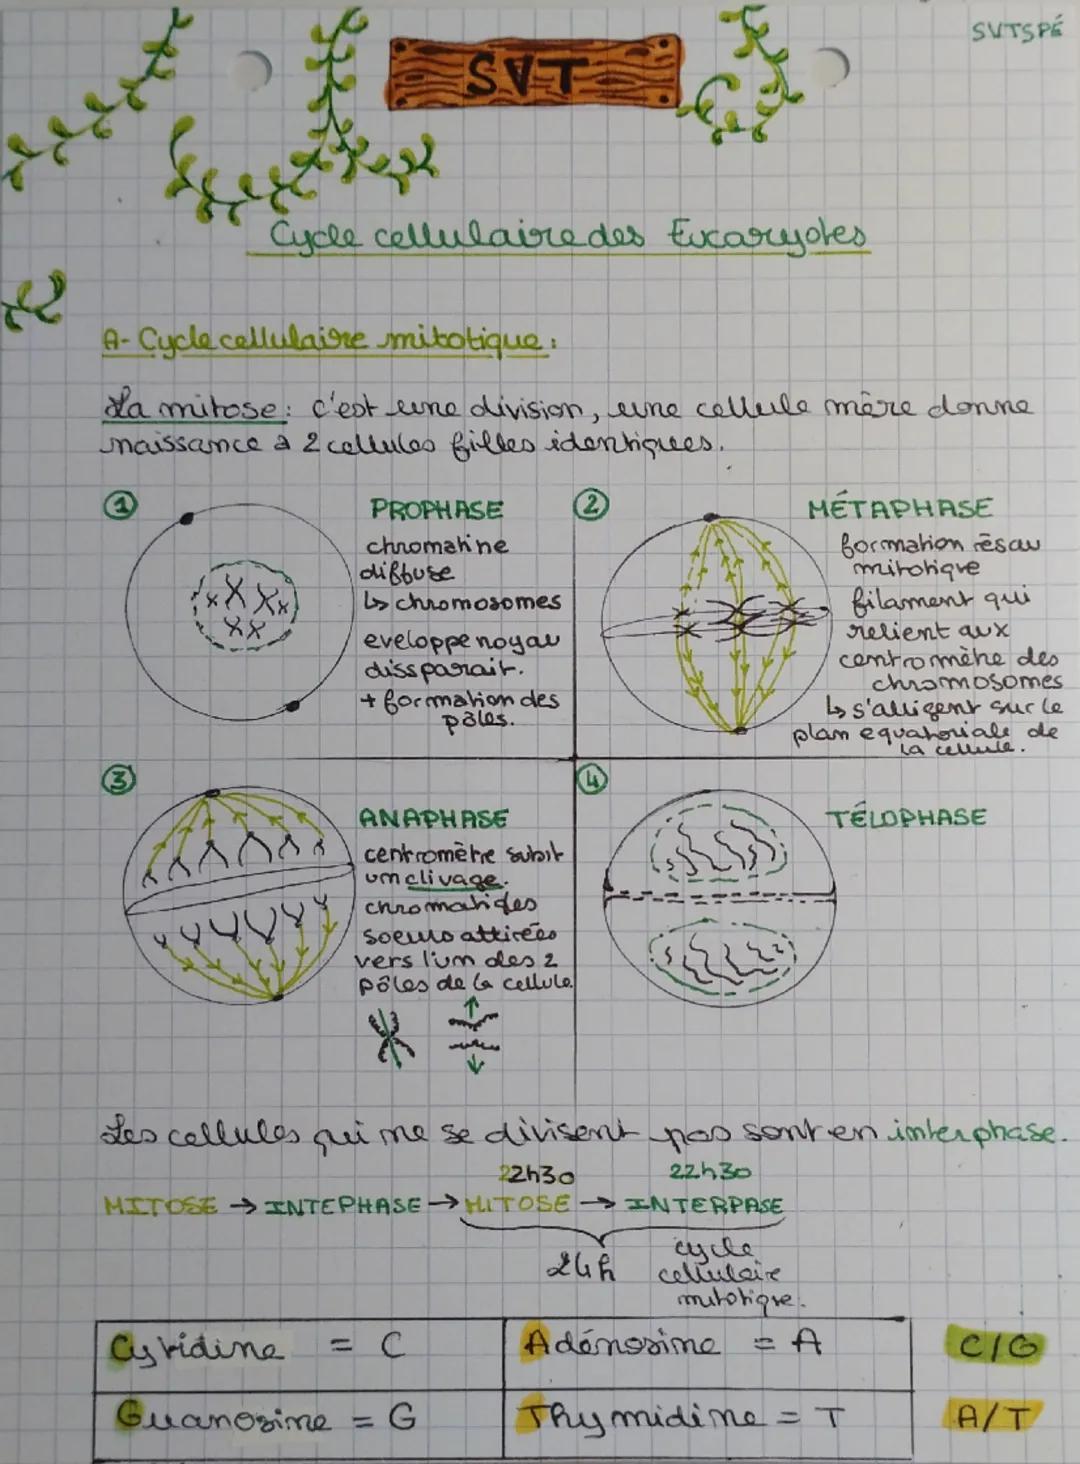 SVTSPÉ
SVT
Cycle cellulaire des Eucaryotes
A- Cycle cellulaire mitotique :
La mitose : c'est une division, une cellule mère donne
naissance à 2 cellules filles identiques.
1
PROPHASE
chromatine
diffuse
↳ chromosomes
eveloppe noyau
dissparait.
+ formation des
pôles.
2
MÉTAPHASE
formation résau
mitotique
filament qui
relient aux
centromère des
chromosomes
↳ s'alligent sur le
plan equatoriale de
la cellule.
3
ANAPHASE
centromère subit
un clivage.
chromatides
soeurs attirées
vers l'un des 2
pôles de la cellule
4
TÉLOPHASE
Les cellules qui ne se divisent pas sont en interphase.
22h30 22h30
MITOSE → INTEPHASE → MITOSE → INTERPASE
24h
cycle
cellulaire
mitotique.
Cytidine = C
Adénosine = A
C/G
Guanosine = G
Thymidine = T
A/T